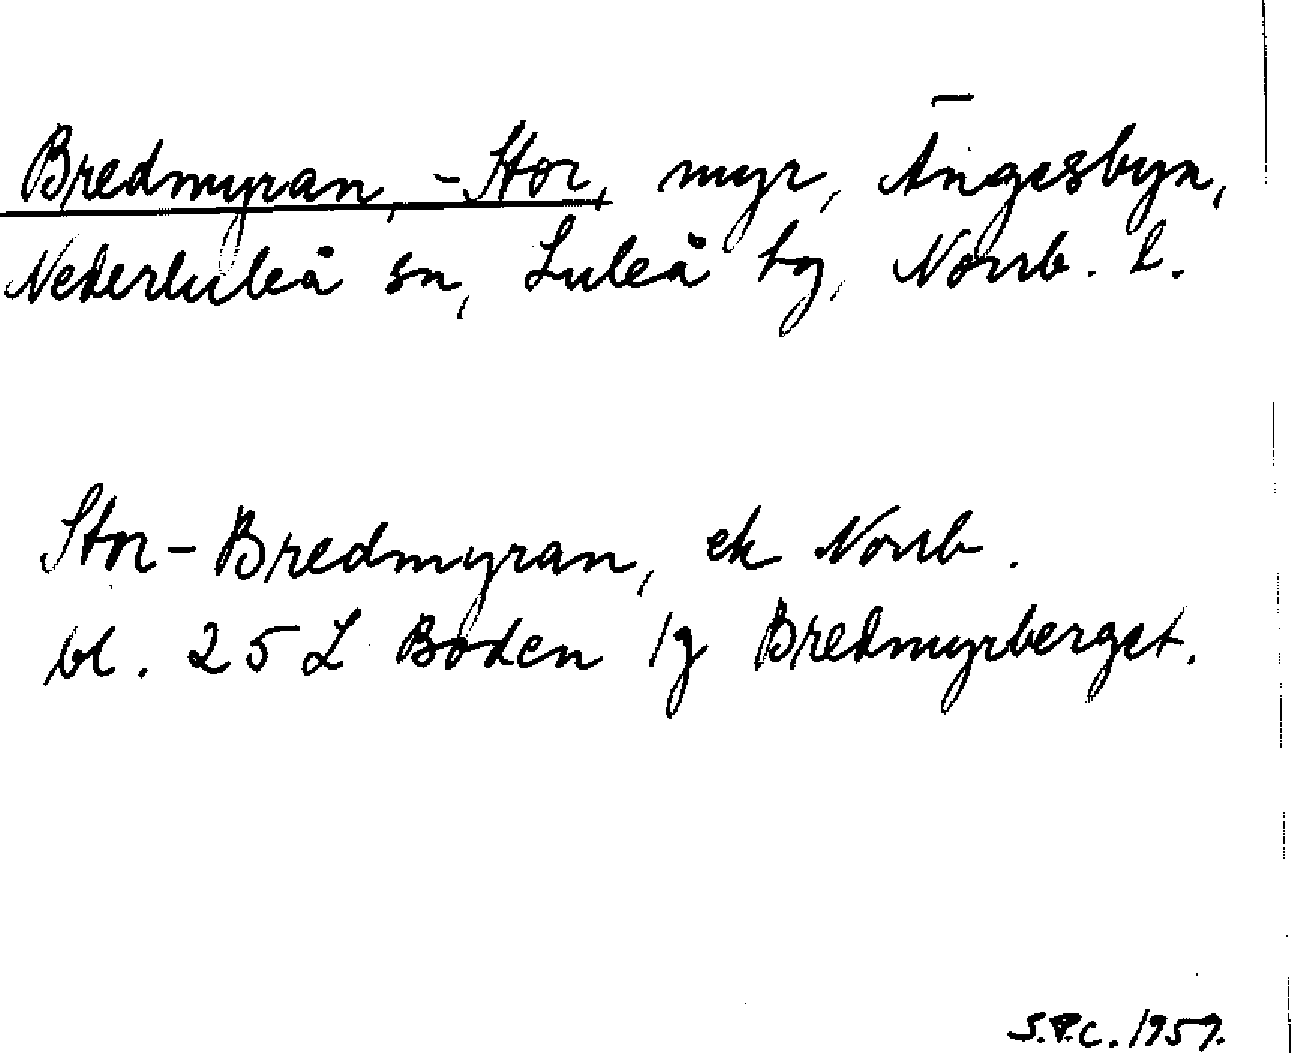 Bredmyran, -Stor, myr, Ängesbyn,
Nederluleå sn, Luleå tg, Norrb. l.
Stor-Bredmyran, ek Norrb.
bl. 25 L Boden /g Bredmyrberget.
S.P.C. 1959.